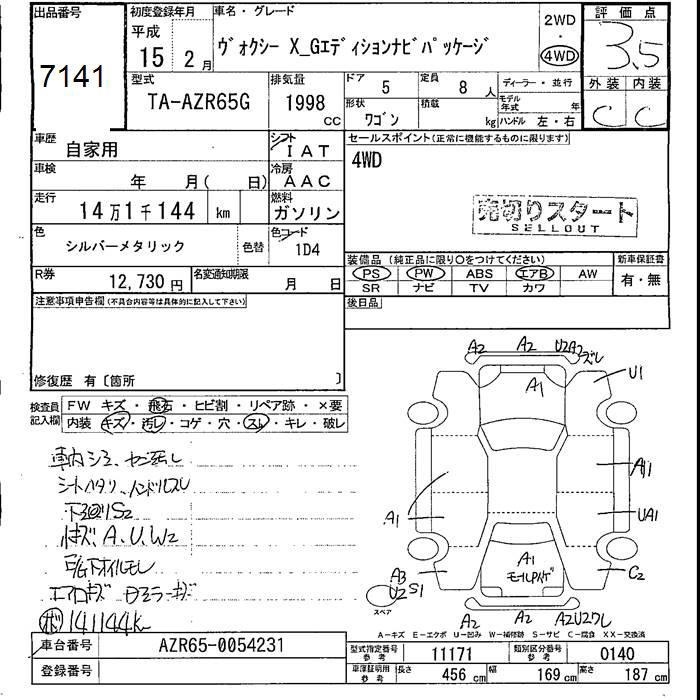 出品番号
7141
初度登録年月
平成
15 2月
車名・グレード
ヴォクシー X_Gエディションナビパッケージ
2WD
・
4WD
評価点
3.5
外装 内装
C C
型式
TA-AZR65G
排気量
1998
cc
ドア
5
定員
8人
形状
ワゴン
積載
kg
ディーラー・並行
モデル年式 年
ハンドル 左・右
車歴
自家用
シフト
IAT
車検
年 月( 日)
冷房
AAC
走行
14万1千144 km
燃料
ガソリン
色
シルバーメタリック
色替
色コード
1D4
R券
12,730円
名変通知期限
月 日
セールスポイント(正常に機能するものに限ります)
4WD
売切りスタート
SELLOUT
装備品(純正品に限り〇をつけてください)
PS PW ABS エアB AW
SR ナビ TV カワ
新車保証書
有・無
後日品
注意事項申告欄(不具合内容等は具体的に記入して下さい)
修復歴 有〔箇所 〕
検査員
記入欄
FW キズ・飛石・ヒビ割・リペア跡・×要
内装 キズ・汚レ・コゲ・穴・スレ・キレ・破レ
下回りS2
キズA.U.W2
141144k
A2 A2 U2A2ズレ
A1
U1
A1
A1
UA1
A1
C2
A3
U2S1
スペア
A2 A2 A2U2ワレ
A-キズ E-エクボ U-凹み W-補修跡 S-サビ C-腐食 XX-交換済
車台番号
AZR65-0054231
登録番号
型式指定番号
参考
11171
類別区分番号
参考
0140
車庫証明用
参考
長さ
456 cm
幅
169 cm
高さ
187 cm